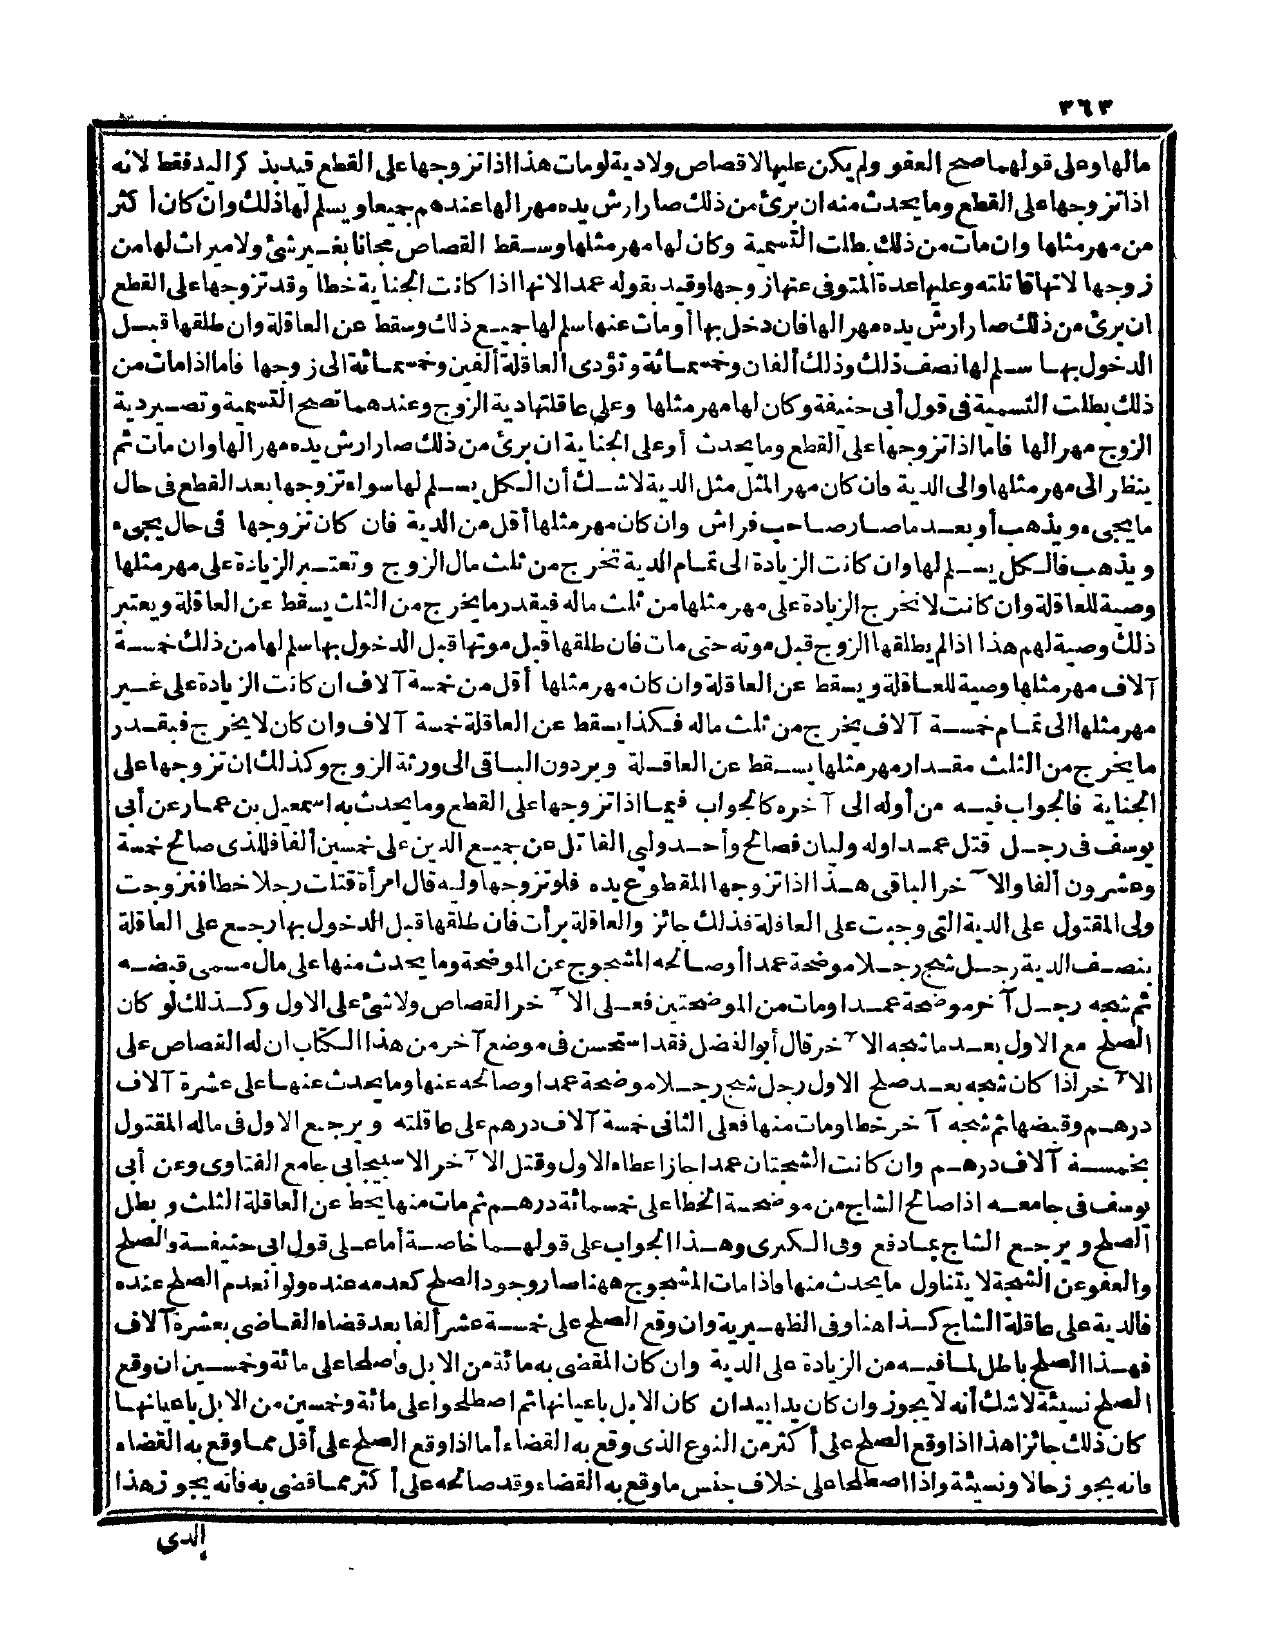 ٣٦٣
مالها وعلى قولهما صح العفو ولم يكن عليها لا قصاص ولا دية لو مات هذا اذا تزوجها على القطع قيد بذكر اليد فقط لانه
اذا تزوجها على القطع وما يحدث منه ان برئ من ذلك صار ارش يده مهرا لها عندهم جميعا ويسلم لها ذلك وان كان أكثر
من مهر مثلها وان مات من ذلك بطلت التسمية وكان لها مهر مثلها وسقط القصاص مجانا بغير شئ ولا ميراث لها من
زوجها لانها قاتلته وعليها عدة المتوفى عنها زوجها وقيد بقوله عمدا لانها اذا كانت الجناية خطا وقد تزوجها على القطع
ان برئ من ذلك صار ارش يده مهرا لها فان دخل بها أو مات عنها سلم لها جميع ذلك وسقط عن العاقلة وان طلقها قبل
الدخول بها سلم لها نصف ذلك وذلك ألفان وخمسمائة وتؤدى العاقلة ألفين وخمسمائة الى زوجها فاما اذا مات من
ذلك بطلت التسمية فى قول أبى حنيفة وكان لها مهر مثلها وعلى عاقلتها دية الزوج وعندهما تصح التسمية وتصير دية
الزوج مهرا لها فاما اذا تزوجها على القطع وما يحدث أو على الجناية ان برئ من ذلك صار ارش يده مهرا لها وان مات ثم
ينظر الى مهر مثلها والى الدية فان كان مهر المثل مثل الدية لاشك أن الكل يسلم لها سواء تزوجها بعد القطع فى حال
ما يجىء ويذهب أو بعد ما صار صاحب فراش وان كان مهر مثلها أقل من الدية فان كان تزوجها فى حال يجىء
ويذهب فالكل يسلم لها وان كانت الزيادة الى تمام الدية تخرج من ثلث مال الزوج وتعتبر الزيادة على مهر مثلها
وصية للعاقلة وان كانت لا تخرج الزيادة على مهر مثلها من ثلث ماله فبقدر ما يخرج من الثلث يسقط عن العاقلة ويعتبر
ذلك وصية لهم هذا اذا لم يطلقها الزوج قبل موته حتى مات فان طلقها قبل موتها قبل الدخول بها سلم لها من ذلك خمسة
آلاف مهر مثلها وصية للعاقلة ويسقط عن العاقلة وان كان مهر مثلها أقل من خمسة آلاف ان كانت الزيادة على غير
مهر مثلها الى تمام خمسة آلاف يخرج من ثلث ماله فكذا يسقط عن العاقلة خمسة آلاف وان كان لا يخرج فبقدر
ما يخرج من الثلث مقدار مهر مثلها يسقط عن العاقلة ويردون الباقى الى ورثة الزوج وكذلك ان تزوجها على
الجناية فالجواب فيه من أوله الى آخره كالجواب فيما اذا تزوجها على القطع وما يحدث به اسمعيل بن عمار عن أبى
يوسف فى رجل قتل عمدا وله وليان فصالح وأحد ولى القاتل عن جميع الدين على خمسين ألفا فللذى صالح خمسة
وعشرون ألفا والآخر الباقى هذا اذا تزوجها المقطوع يده فلو تزوجها وليه قال امرأة قتلت رجلا خطا فتزوجت
ولى المقتول على الدية التى وجبت على العاقلة فذلك جائز والعاقلة برأت فان طلقها قبل الدخول بها رجع على العاقلة
بنصف الدية رجل شج رجلا موضحة عمدا أو صالحه المشجوج عن الموضحة وما يحدث منها على مال مسمى قبضه
ثم شجه رجل آخر موضحة عمدا ومات من الموضحتين فعلى الآخر القصاص ولا شئ على الاول وكذلك لو كان
الصلح مع الاول بعد ما شجه الآخر قال أبو الفضل فقد استحسن فى موضع آخر من هذا الكتاب ان له القصاص على
الآخر اذا كان شجه بعد صلح الاول رجل شج رجلا موضحة عمدا وصالحه عنها وما يحدث عنها على عشرة آلاف
درهم وقبضها ثم شجه آخر خطا ومات منها فعلى الثانى خمسة آلاف درهم على عاقلته ويرجع الاول فى ماله المقتول
بخمسة آلاف درهم وان كانت الشجتان عمدا جاز اعطاء الاول وقتل الآخر الاسبيجابى جامع الفتاوى وعن أبى
يوسف فى جامعه اذا صالح الشاج من موضحة الخطا على خمسمائة درهم ثم مات منها يحط عن العاقلة الثلث وبطل
الصلح ويرجع الشاج بمادفع وفى الكبرى وهذا الجواب على قولهما خاصة أما على قول ابى حنيفة والصلح
والعفو عن الشجة لا يتناول ما يحدث منها فاذا مات المشجوج ههنا صار وجود الصلح كعدمه عنده ولو انعدم الصلح عنده
فالدية على عاقلة الشاج كذا هنا وفى الظهيرية وان وقع الصلح على خمسة عشر ألفا بعد قضاء القاضى بعشرة آلاف
فهذا الصلح باطل لما فيه من الزيادة على الدية وان كان المقضى به مائة من الابل فأصطلحا على مائة وخمسين ان وقع
الصلح نسيئة لاشك أنه لا يجوز وان كان يدا بيد ان كان الابل باعيانها ثم اصطلحوا على مائة وخمسين من الابل باعيانها
كان ذلك جائزا هذا اذا وقع الصلح على أكثر من النوع الذى وقع به القضاء أما اذا وقع الصلح على أقل مما وقع به القضاء
فانه يجوز حالا ونسيئة واذا اصطلحا على خلاف جنس ما وقع به القضاء وقد صالحه على أكثر مما قضى به فانه يجوز هذا
الدى